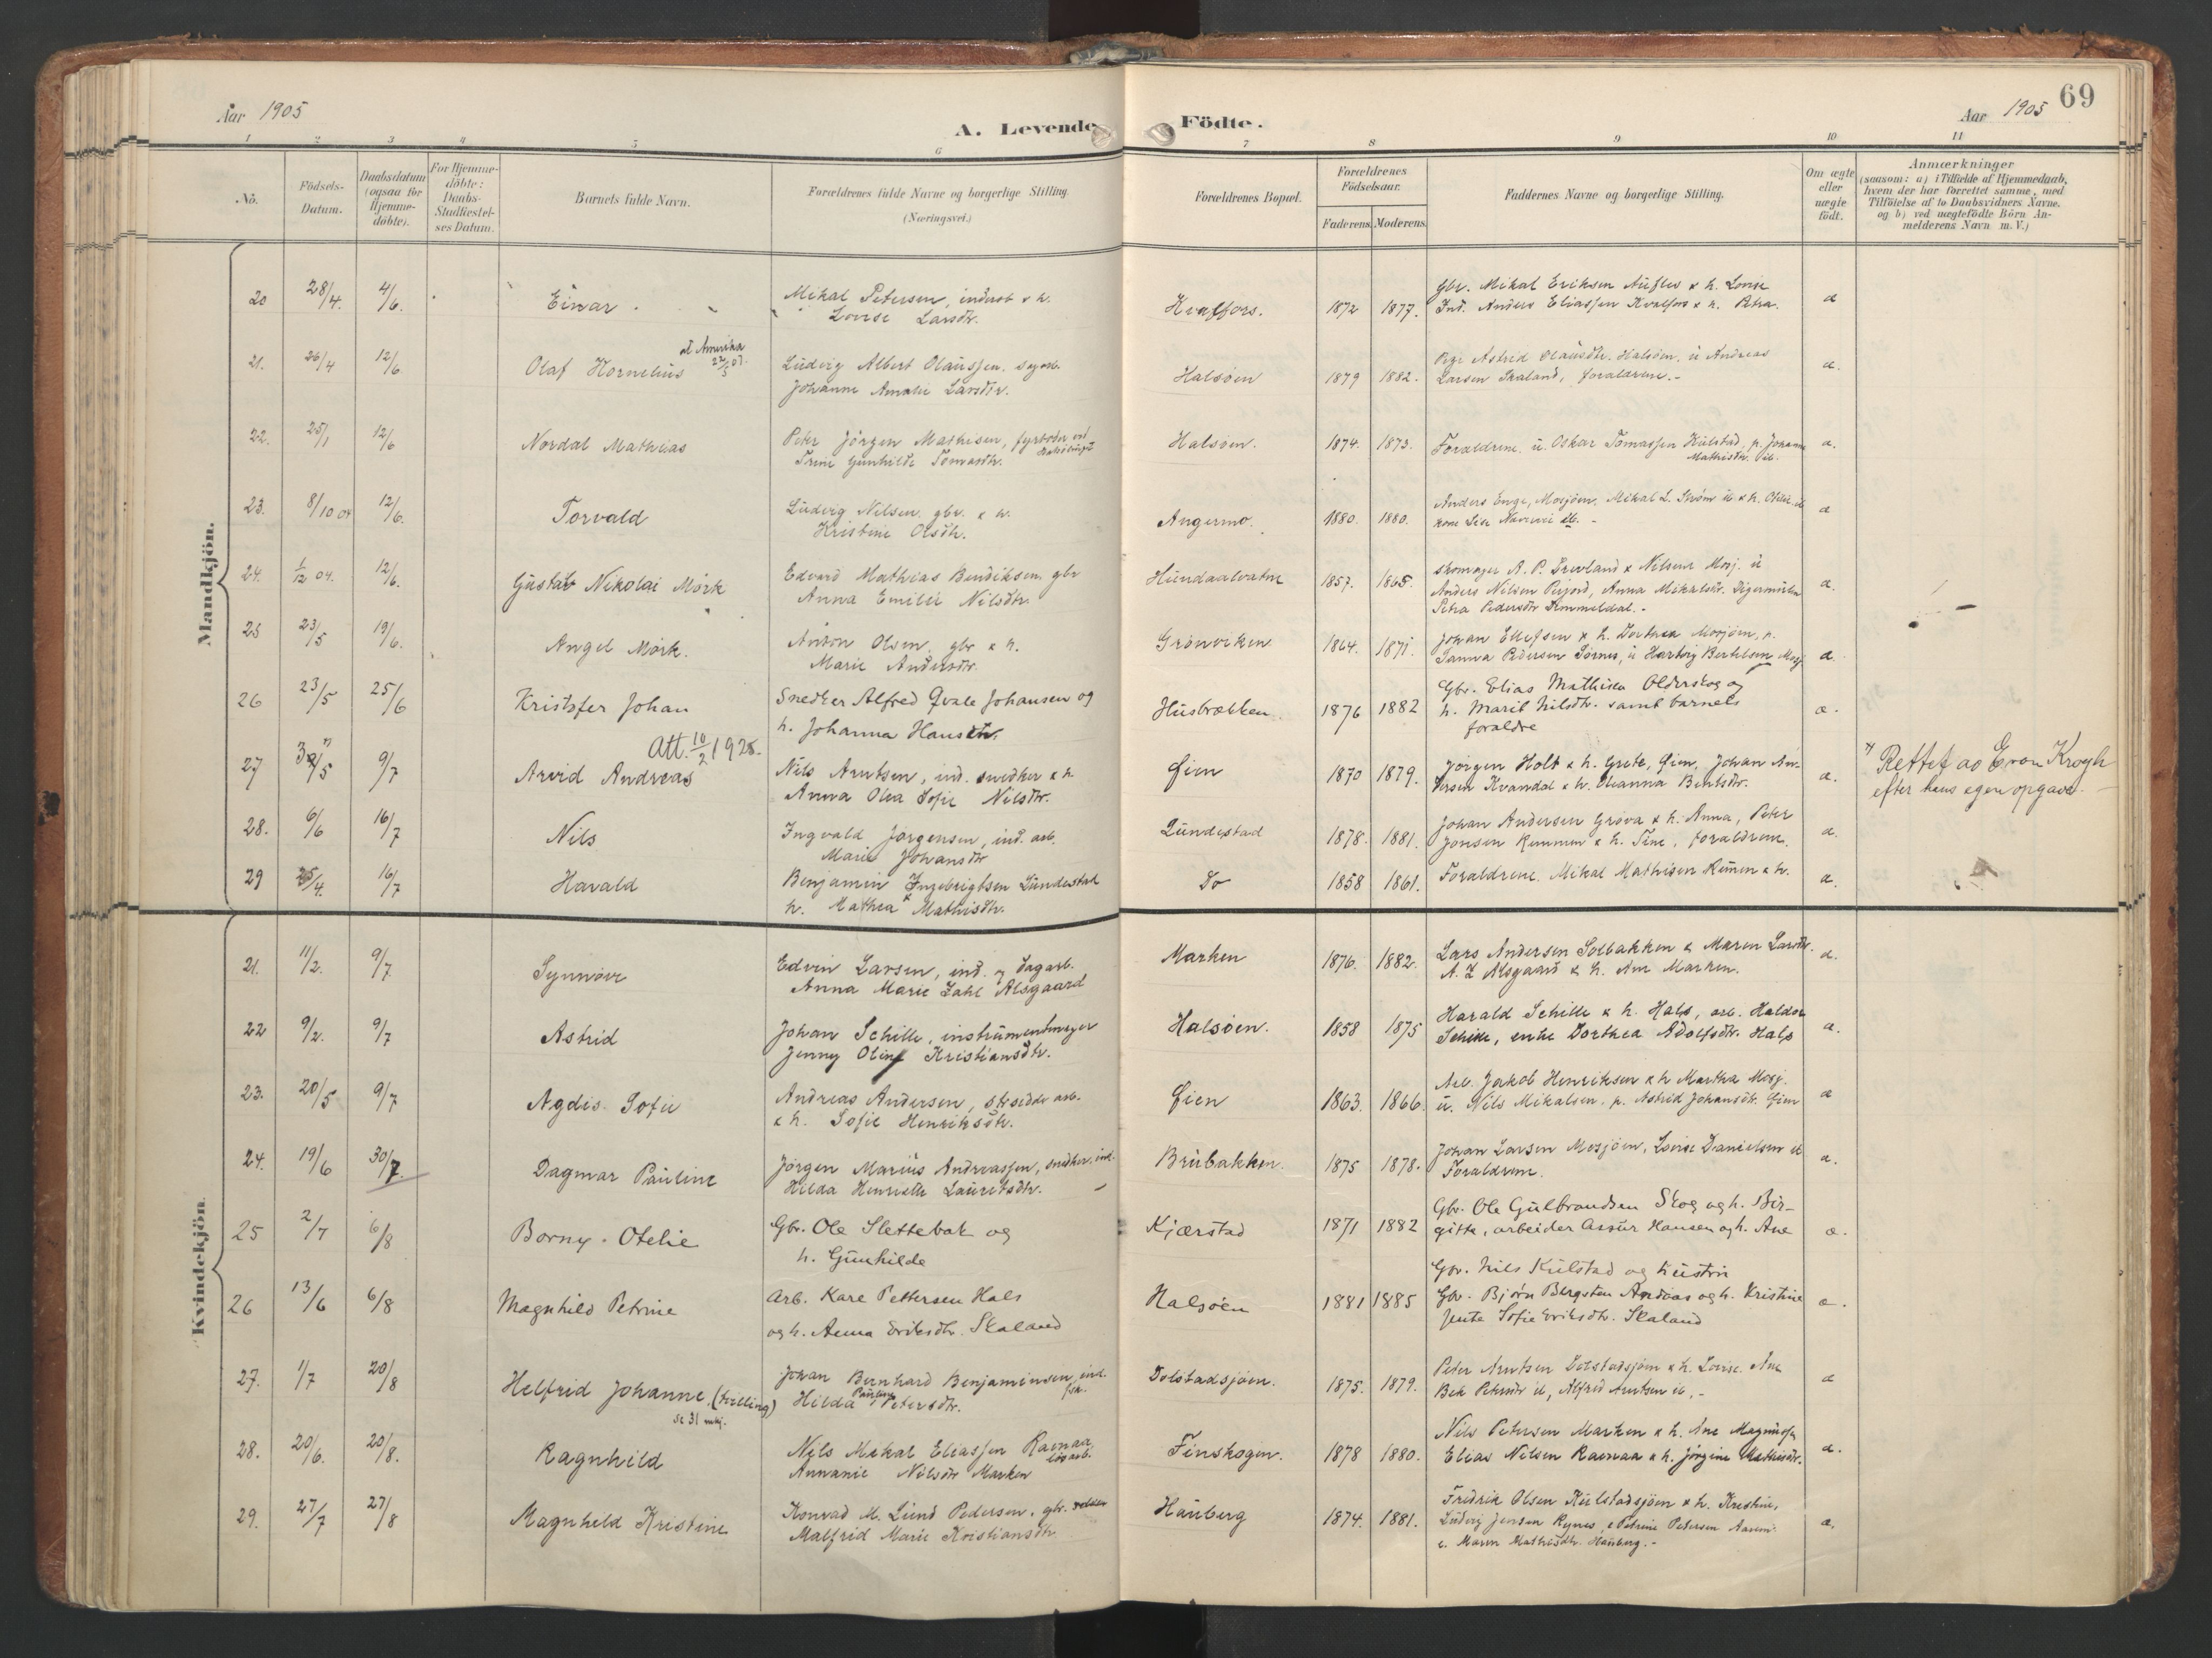 Aar 1905
A. Levende Födte.
Aar 1905
69
1 2 3 4 5 6 7 8 9 10 11
No.
Födsels-Datum.
Daabsdatum (ogsaa for Hjemme-döbte).
For Hjemme-döbte: Daabs-Stadfæstel-ses Datum.
Barnets fulde Navn.
Forældrenes fulde Navne og borgerlige Stilling.
(Næringsvei.)
Forældrenes Bopæl.
Forældrenes Födselsaar.
Faderens. Moderens.
Faddernes Navne og borgerlige Stilling.
Om ægte eller uægte födt.
Anmærkninger
(saasom: a) i Tilfælde af Hjemmedaab, hvem der har forrettet samme, med Tilföielse af to Daabsvidners Navne, og b) ved uægtefödte Börn An-melderens Navn m. V.)
Mandkjön.
20 28/4. 4/6. Einar
Mikal Petersen, inderst & h.
Lovise Larsdtr.
Kvalfors. 1872 1877.
Gbr. Mikal Eriksen & h. Lovise
Ind. Anders Eliassen Kvalfors & h. Petra. a
21. 26/4 12/6 Olaf Kornelius
at Amerika 22/5 07.
Ludvig Albert Olaussen
Johanne Amalie Larsdtr.
Halsøen 1879 1882.
Pige Astrid Olausdtr. Halsøen, u Andreas
Larsen Skaland, forældrene.- a.
22. 25/1 12/6 Nordal Mathias
Peter Jörgen Mathisen, fyrbøder ved
Trine Gunhilde Tomasdtr.
Halsøen. 1874. 1873.
Forældrene. u. Oskar Tomassen Kulstad, p. Johanne
Mathisdtr. ib. a.
23. 8/10 04 12/6. Torvald
Ludvig Nilsen. gbr. & h.
Kristine Olsdtr.
Angermo. 1880. 1880.
Anders Enge, Mosjöen, Mikal L. Ström ib & h.
kone Lise ib. - a
24. 1/12 04. 12/6. Gustav Nikolai Mörk
Edvard Mathias Bendiksen. gbr
Anna Emilie Nilsdtr.
Hundaalvatn 1857. 1865.
skomager A. P. & Nilsine Mosj. u
Anders Nilsen, Anna Mikalsdtr.
Petra Pedersdtr. - a.
25 23/5 19/6. Angel Mörk.
Anton Olsen. gbr & h.
Marie Andersdtr.
Grönviken 1864. 1871.
Johan Ellefsen & h. Dorthea Mosjöen, p.
Sanna Pedersen, u Hartvig Bertelsen Mosj a.
26 23/5 25/6 Kristofer Johan
Snedker Alfred Qvale Johansen og
h. Johanna Hansdtr.
Husbrækken. 1876 1882
Gbr. Elias Mathisen Olderskog og
h. Marit Nilsdtr. samt barnets
forældre æ.
27 9/7 Arvid Andreas
Att. 10/2 1925.
Nils Arntsen, ind. snedker & h.
Anna Olea Sofie Nilsdtr.
Øien 1870 1879.
Jörgen Holt & h. Grete, Øien, Johan An-
dersen Kvandal & h. Oleanna Bentsdtr. a.
*) Rettet av E von Krogh
efter hans egen opgave.
28. 6/6 16/7 Nils
Ingvald Jörgensen, ind. arb.
Marie Johansdtr
Lundestad 1878. 1881.
Johan Andersen Grova & h. Anna, Peter
Jonsen Remmen & h. Tine, forældrene. a.
29 25/4. 16/7 Harald
Benjamin Ingebrigtsen Lundestad
h. Mathea Mathisdtr.
Do 1858 1861.
Forældrene. Mikal Mathisen Remen & h. a.
Kvindekjön.
21. 11/2. 9/7 Synnöve
Edvin Larsen, ind. og dagarb.
Anna Marie Zahl Alsgaard
Marken 1876. 1882.
Lars Andersen Solbakken & Maren Larsdtr.
A. Z Alsgaard & h. Ane Marken. a.
22 9/2. 9/7 Astrid
Johan Schille, instrumentmager
Jenny Oline Kristiansdtr.
Halsöen. 1858 1875
Harald Schille & h. Hals, arb. Haldor
Schille, enke Dorthea Adolfsdtr. Hals a.
23. 20/5 9/7 Agdis Sofie
Andreas Andersen, arb.
& h. Sofie Henriksdtr.
Øien 1863. 1866.
Arb. Jakob Henriksen & h Martha Mosj.
u. Nils Mikalsen. p. Astrid Johansdtr. Øien a
24. 19/6 30/7. Dagmar Pauline
Jörgen Marius Andreassen, snedker. ind.
Hilda Henriette Lauritsdtr.
Brubakken. 1875 1878.
Johan Larsen Mosjöen, Lovise Danielsen ib
Forældrene. a.
25 2/7 6/8 Borny Otelie
Gbr. Ole Slettebak og
h. Gunhilde
Kjærstad 1871 1882
Gbr. Ole Gulbrandsen Skog og h. Bir-
gitte, arbeider Assur Hansen og h. Ane æ.
26 13/6 6/8 Magnhild Petrine
Arb. Kare Pettersen Hals
og h. Anna Eriksdtr. Skaland
Halsöen 1881 1885
Gbr. Nils Kulstad og hustru
Gbr. Bjørn Bergsten Andaas og h. Kristine
Jente Sofie Eriksdtr. Skaland æ.
27. 1/7 20/8 Helfrid Johanne. (tvilling)
se 31 mkj.
Johan Bernhard Benjaminsen, ind. fsk.
Hilda Pauline Petersdtr.
Dolstadsjöen. 1875. 1879.
Peter Arntsen Dolstadsjöen & h. Lovise. Ane
Bek Petersdtr ib, Alfred Arntsen ib,- a
28. 20/6. 20/8. Ragnhild
Nils Mikal Eliassen Ramaa, lösarb.
Annanie Nilsdtr Marken
Finskogen. 1878 1880.
Nils Petersen Marken & h. Ane Magnusdtr
Elias Nilsen Ramaa & h. Jörgine Mathisdtr. a.
29. 27/7 27/8 Magnhild Kristine
Konrad M. Lund Pedersen. gbr.
Malfrid Marie Kristiansdtr.
Hauberg 1874. 1881.
Fredrik Olsen Kulstadsjöen & h. Kristine,
Ludvig Jensen Rynes, & Petrine Petersen
& Maren Mathisdtr. Hauberg.- a.